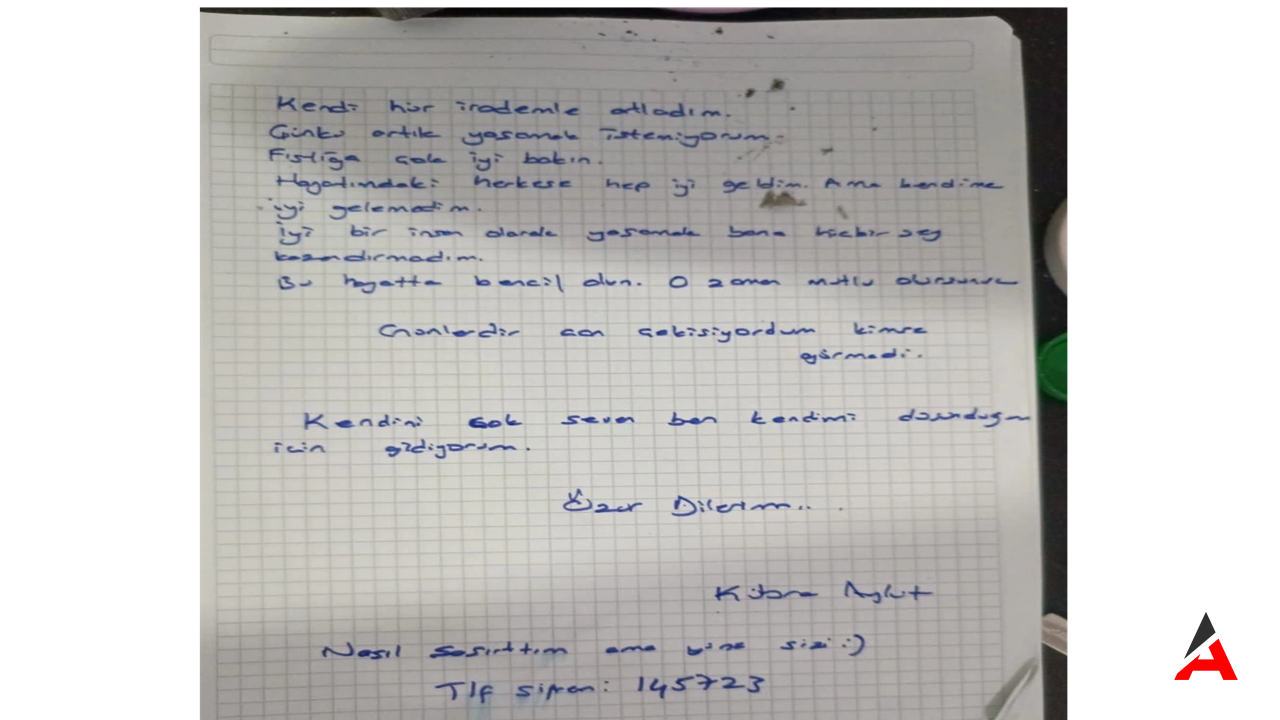 Kendi hür irademle atladım.
Çünkü artık yaşamak istemiyorum.
Fıstığa çok iyi bakın.
Hayatımdaki herkese hep iyi geldim. Ama kendime
iyi gelemedim.
İyi bir insan olarak yaşamak bana hiçbir şey
kazandırmadım.
Bu hayatta bencil olun. O zaman mutlu olursunuz
Günlerdir can çekişiyordum kimse
görmedi.
Kendini çok seven ben kendimi düşündüğüm
için gidiyorum.
Özür Dilerim..
Kübra Aykut
Nasıl şaşırttım ama yine sizi :)
Tlf şifrem: 145723
A